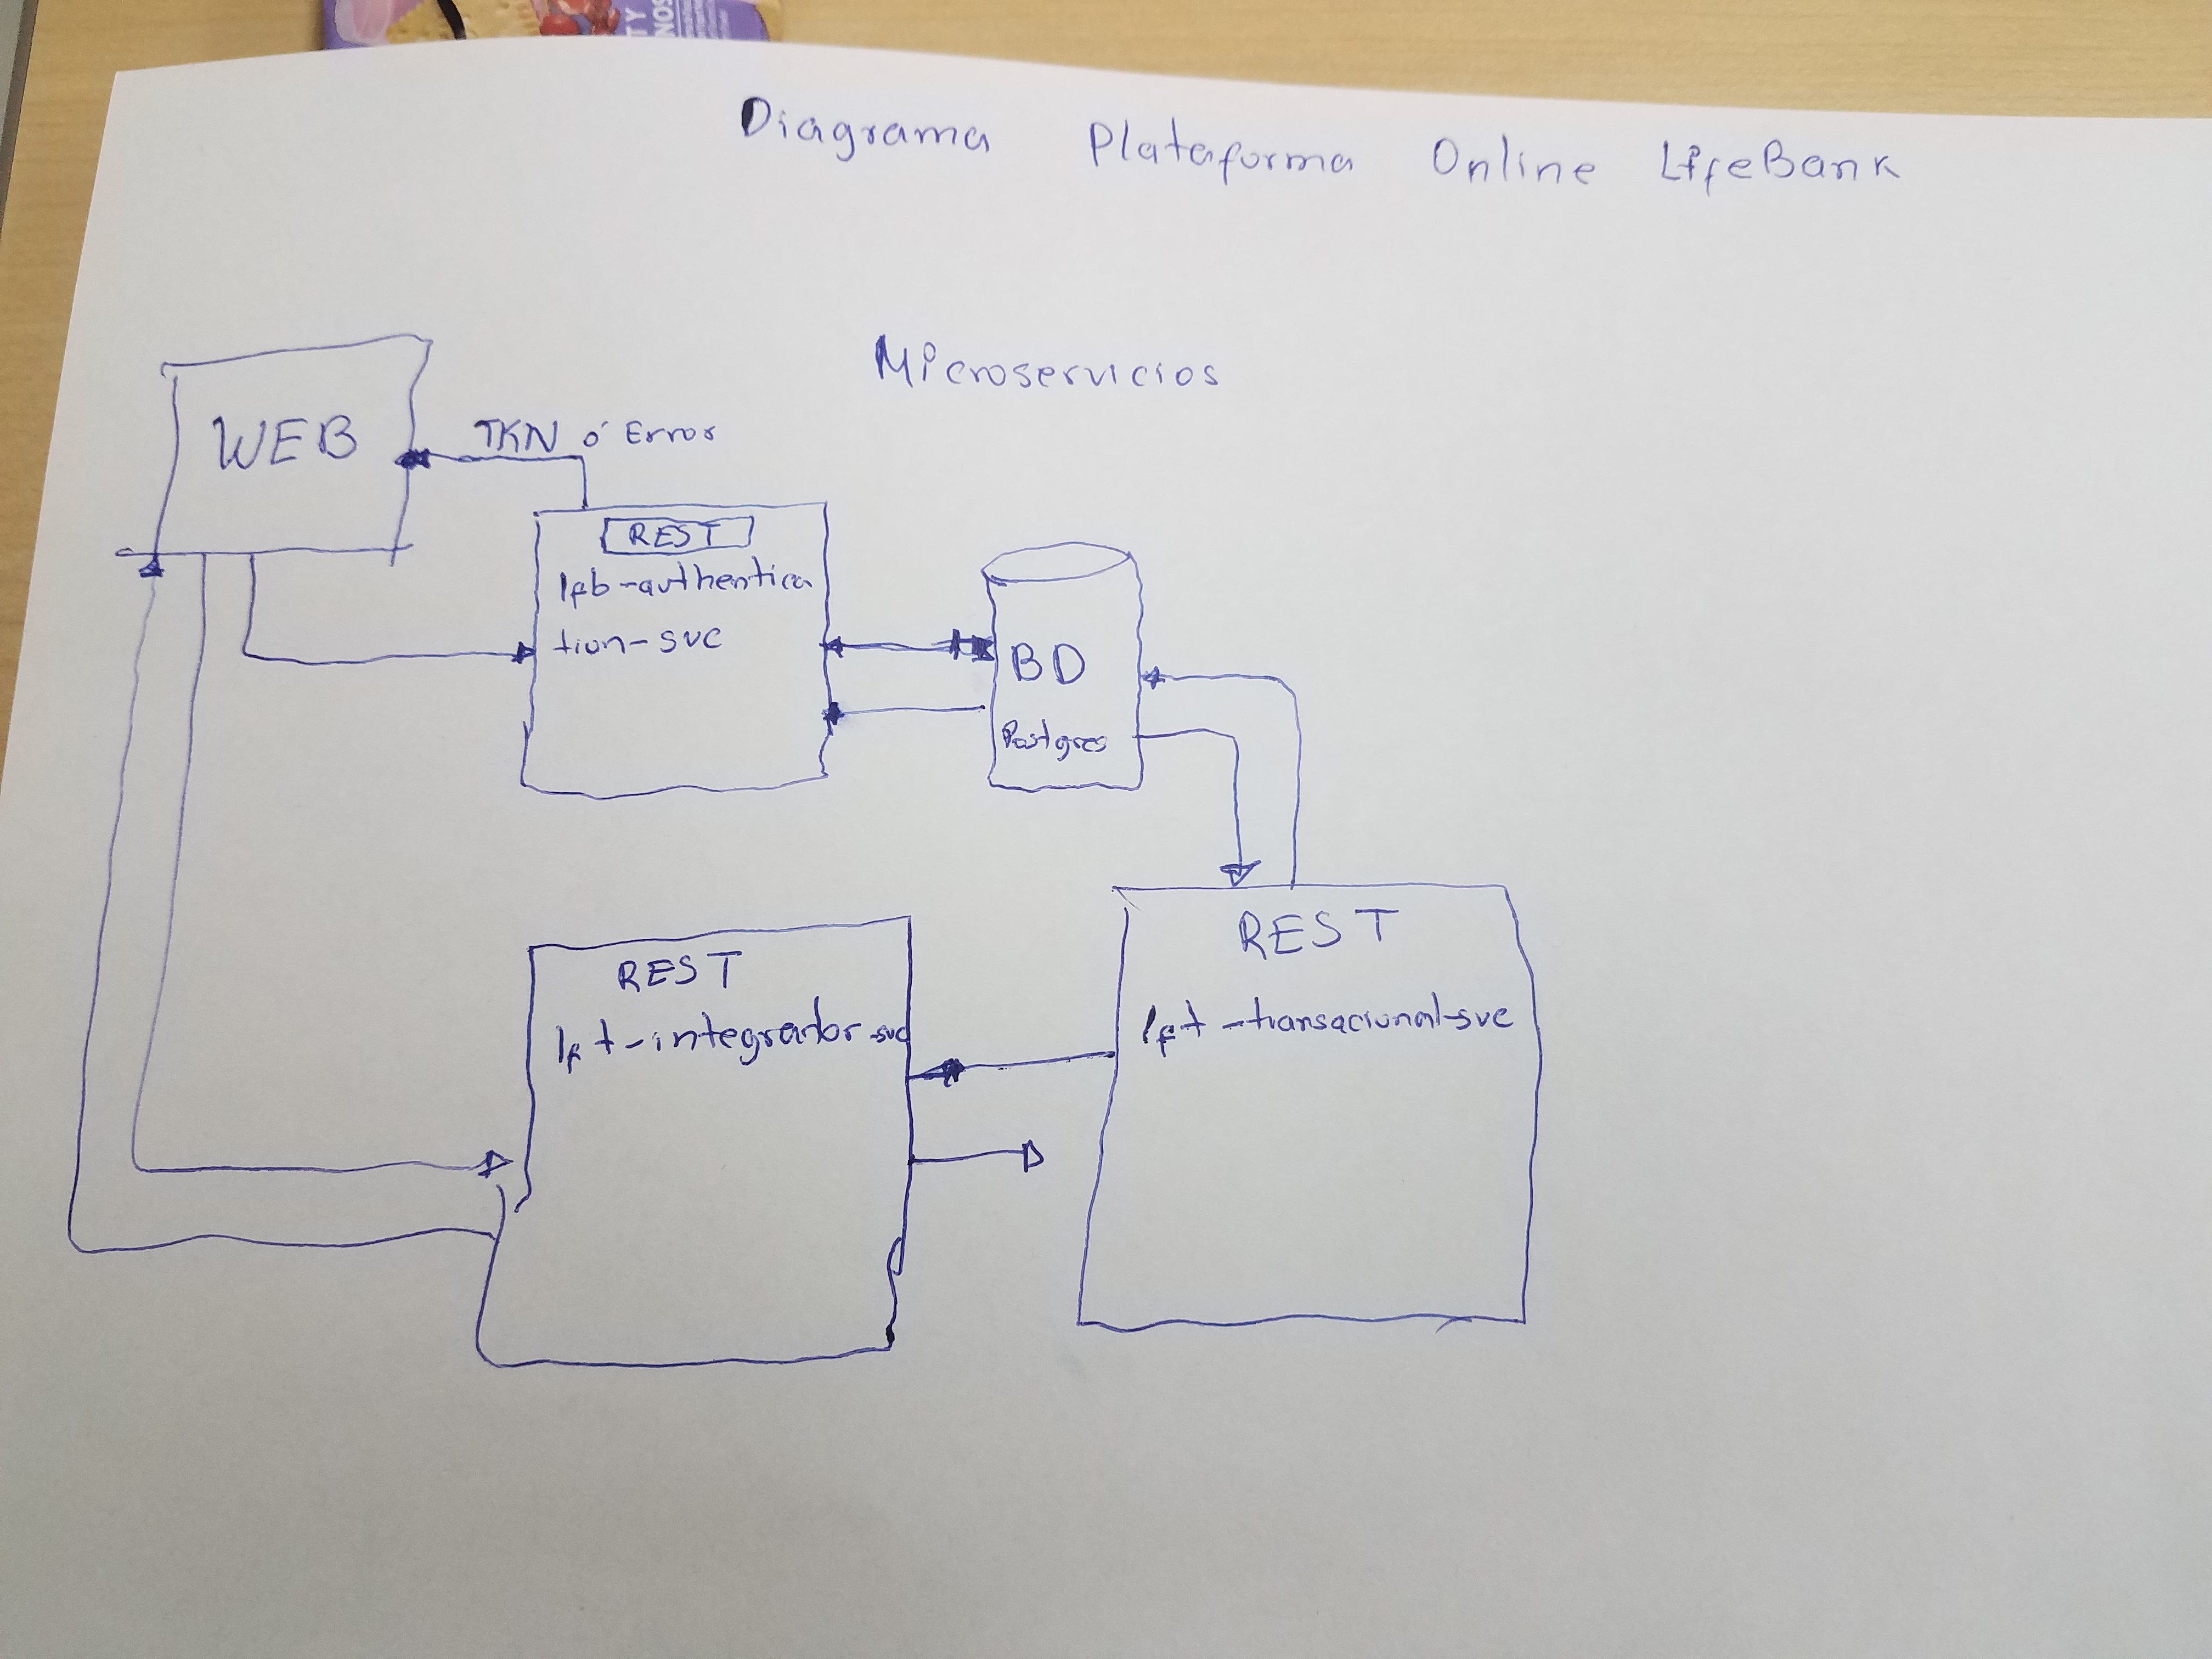 Diagrama Plataforma Online LifeBank
Microservicios
WEB
TKN ó Error
REST
lfb-authentica
tion-svc
BD
Postgres
REST
lft-integrador-svc
REST
lft-transacional-svc